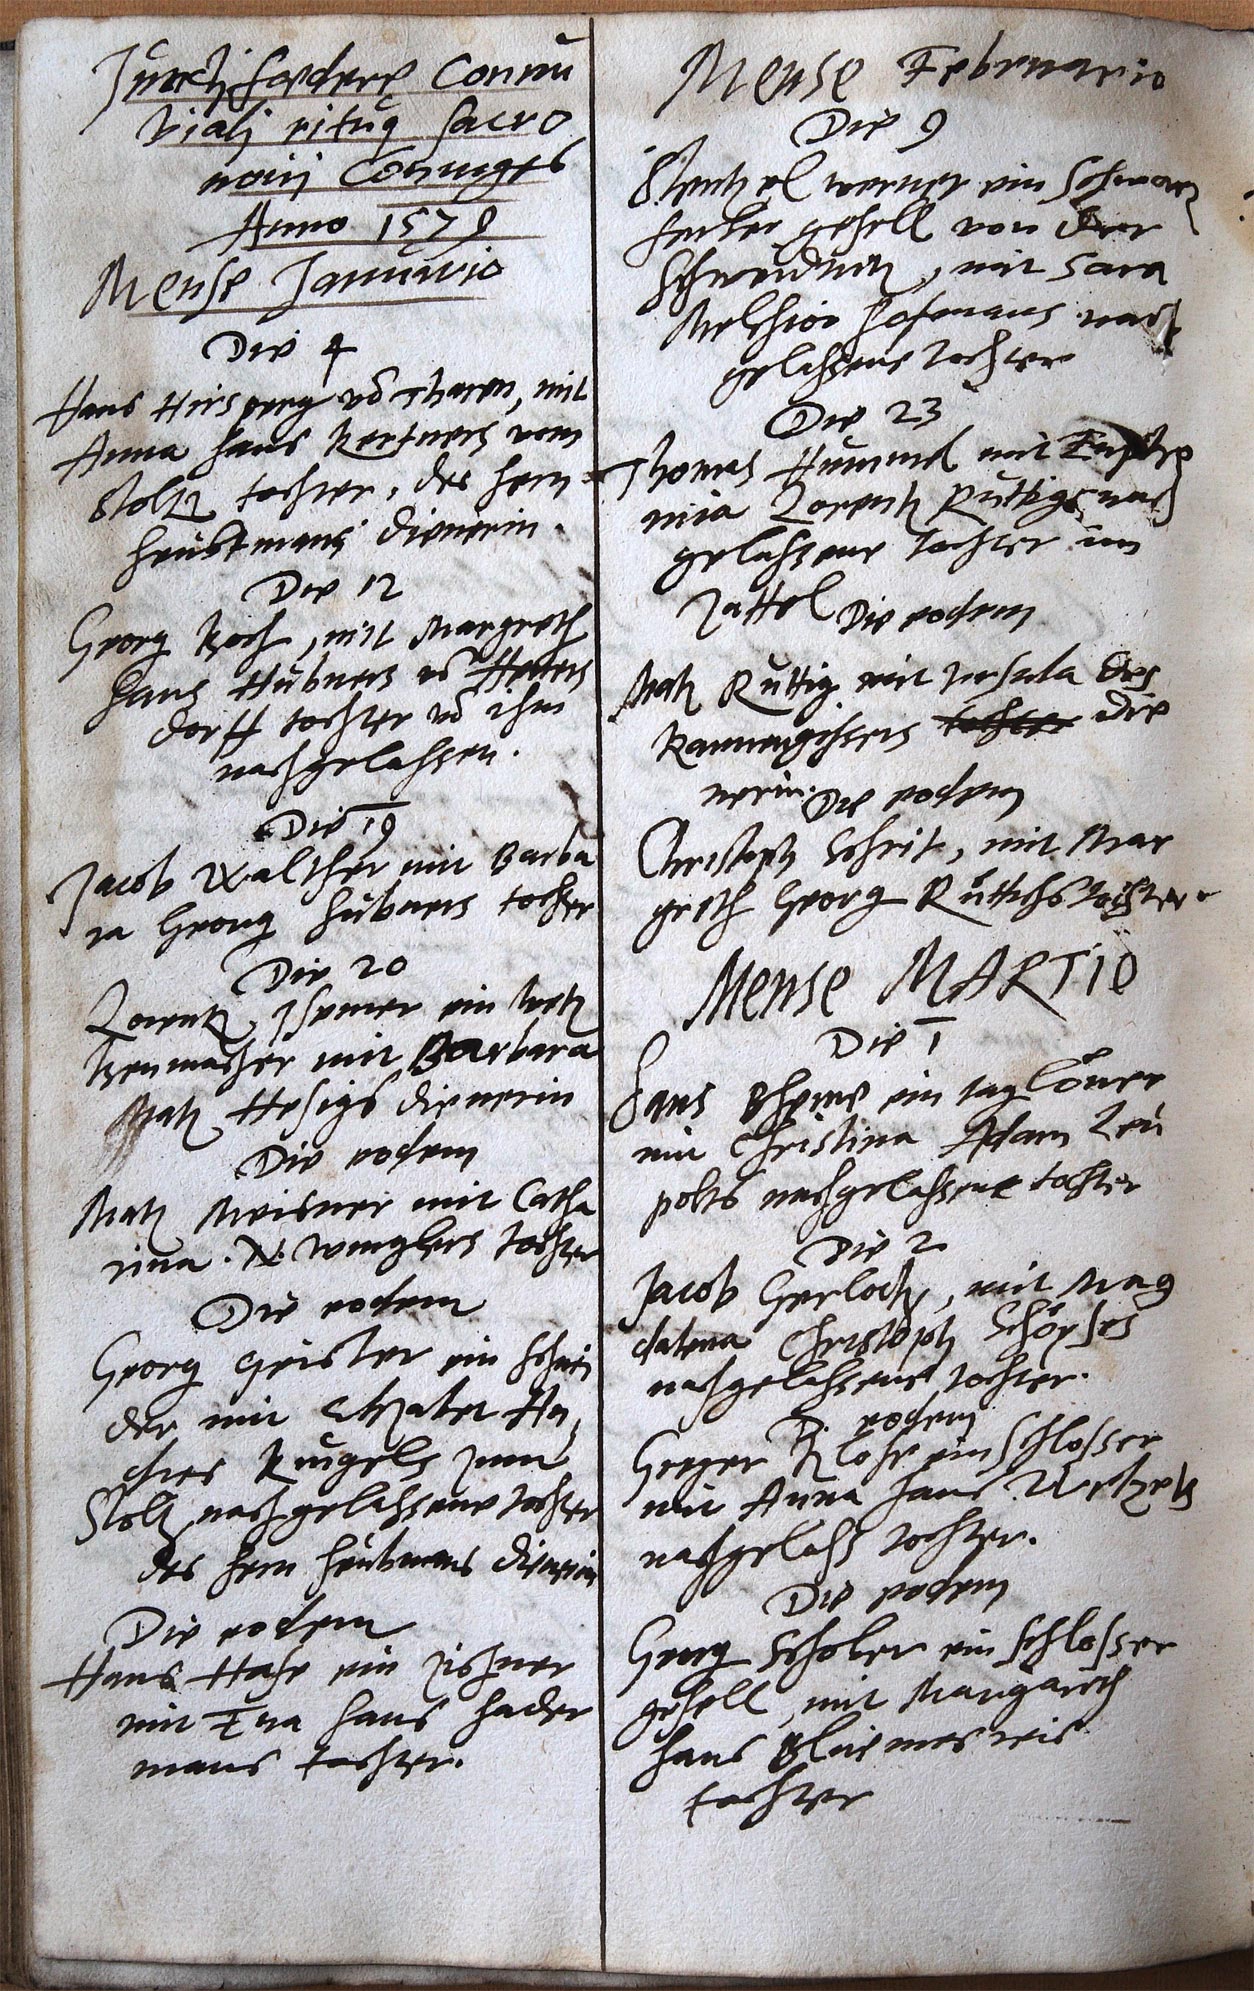 Juncti foedere Connu
biali rituq sacro
novi Coniuges
Anno 1579
Mense Januario
Die 4
Hans Hirsperg vō Tharen, mit
Anna hans Kertners vom
Stoltz tochter, des hern
heubtmans dienerin.
Die 12
Georg Koch, mitt Margreth
hans Hübners vō
dorff tochter vō ihm
nachgelassen.
Die 19
Jacob Walther mit Barba
ra Georg hübners tochter
Die 20
Lorentz Isemer ein
mit Barbara
Matz Hesigs dienerin
Die eodem
Matz Meisner mit Catha
rina. N. Winglers tochter
Die eodem
Georg Geisler ein schnei
der mit Elizabet An
dres Kügels zum
Stoltz nachgelassene tochter
des hern heubtmans dienerin
Die eodem
Hans Hase ein zichner
mit Eva hans hader
mans tochter.
Mense Februario
Die 9
Stentzel werner ein Schwartz
ferber gesell von der
Schweidnitz, mit Sara
Melchior hofemans nach
gelassene tochter
Die 23
Thomas Hummel mit Euphe
mia Lorentz Ruttigs nach
gelassene tochter im
Zattel Die eodem
Matz Ruttig mit Ursula des
Kannengissers tochter die
nerin. Die eodem
Christoph Schrit, mit Mar
greth Georg Rüttichs tochter
Mense MARTIO
Die 1
Hans Bheme ein taglöner
mit Christina Adam Leu
polts nachgelassene tochter
Die 2
Jacob Gerlach, mit Mag
dalena Christoph Schöpses
nachgelassene tochter.
Di eodem
Greger Klose ein schlosser
mit Anna hans Wetzels
nachgelass tochter.
Die eodem
Georg Scholer ein schlosser
gesell, mit Margareth
hans
tochter